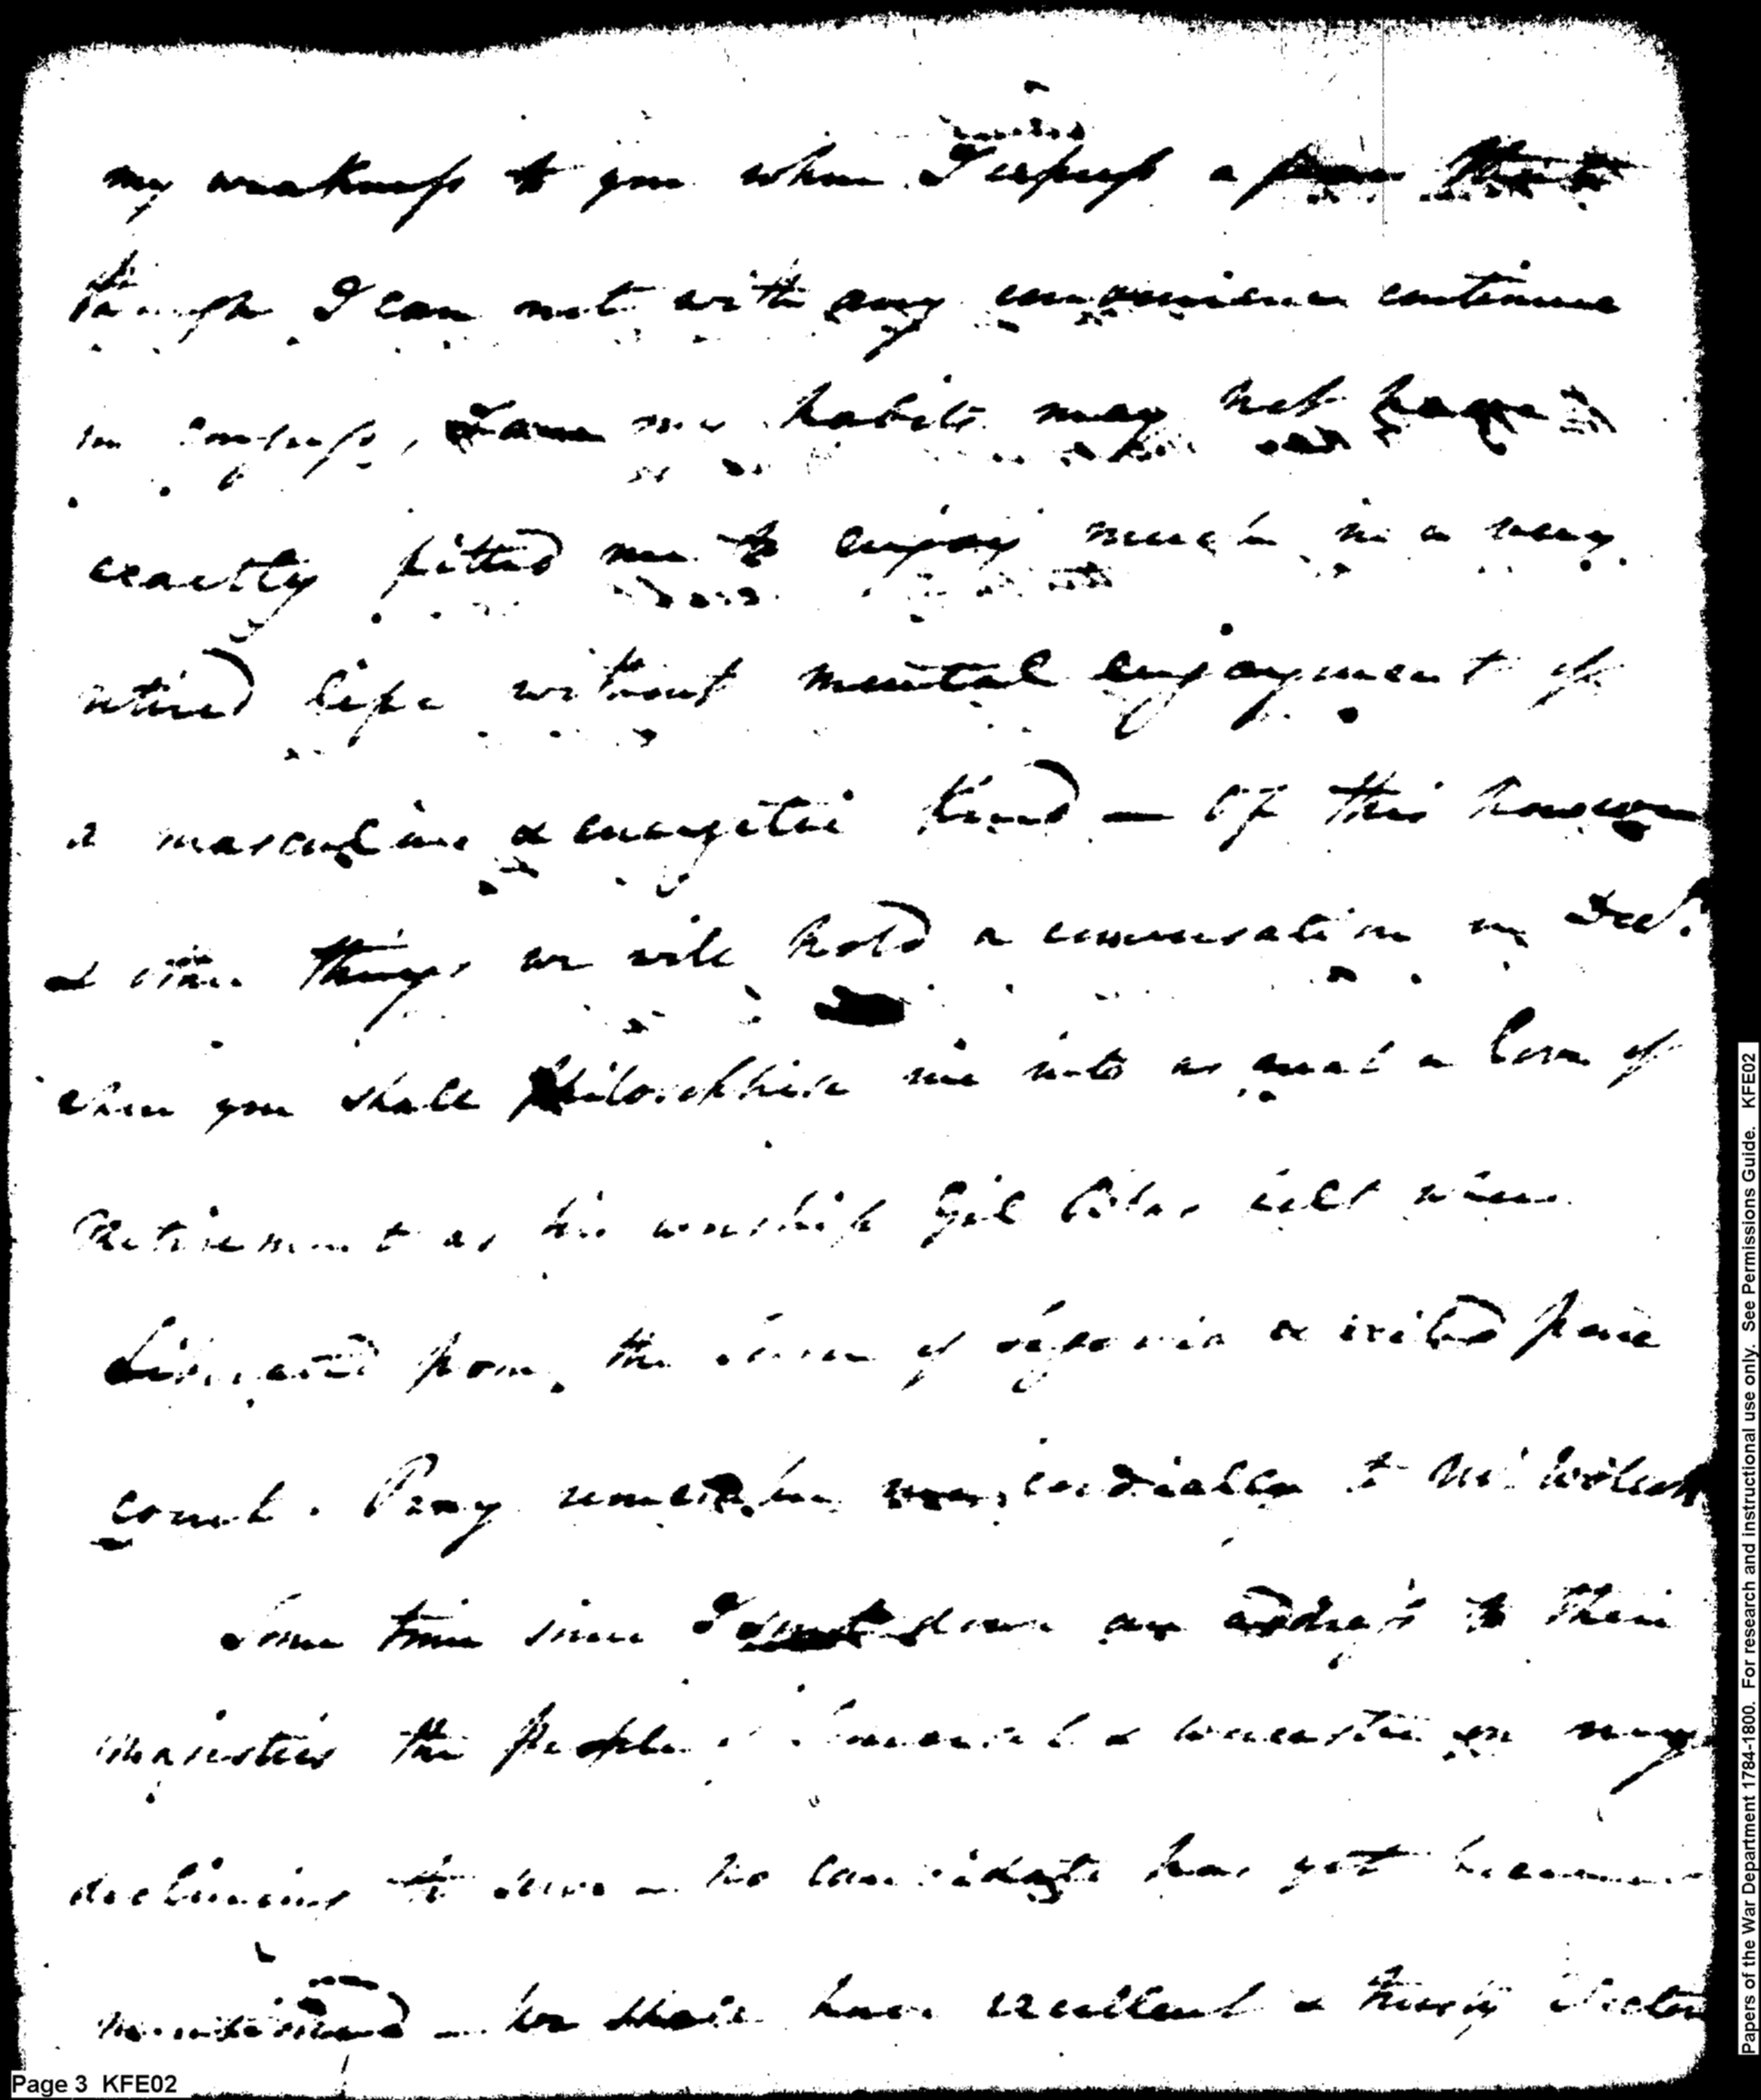 my weakness to you when I express a fear that
though I can not with any convenience continue
in Congress, my habits may not have
exactly fitted me to enjoy much in a very
retired life without mental enjoyment of
a masculine & energetic kind — Of this however
& other things we will hold a conversation in Decr.
when you shall philosophise me into as great a love of
Retirement as his worship Gil Blas felt when
Liberated from the tower of Segovia & exiled from
court. Pray remember me cordially to Mr Wolcott
Some time since I sent down an address to their
majesties the people & Lancaster on my
declining to serve — No candidate has yet been
mentioned — We shall have excellent & trusty
Page 3 KFE02
Papers of the War Department 1784-1800. For research and instructional use only. See Permissions Guide. KFE02